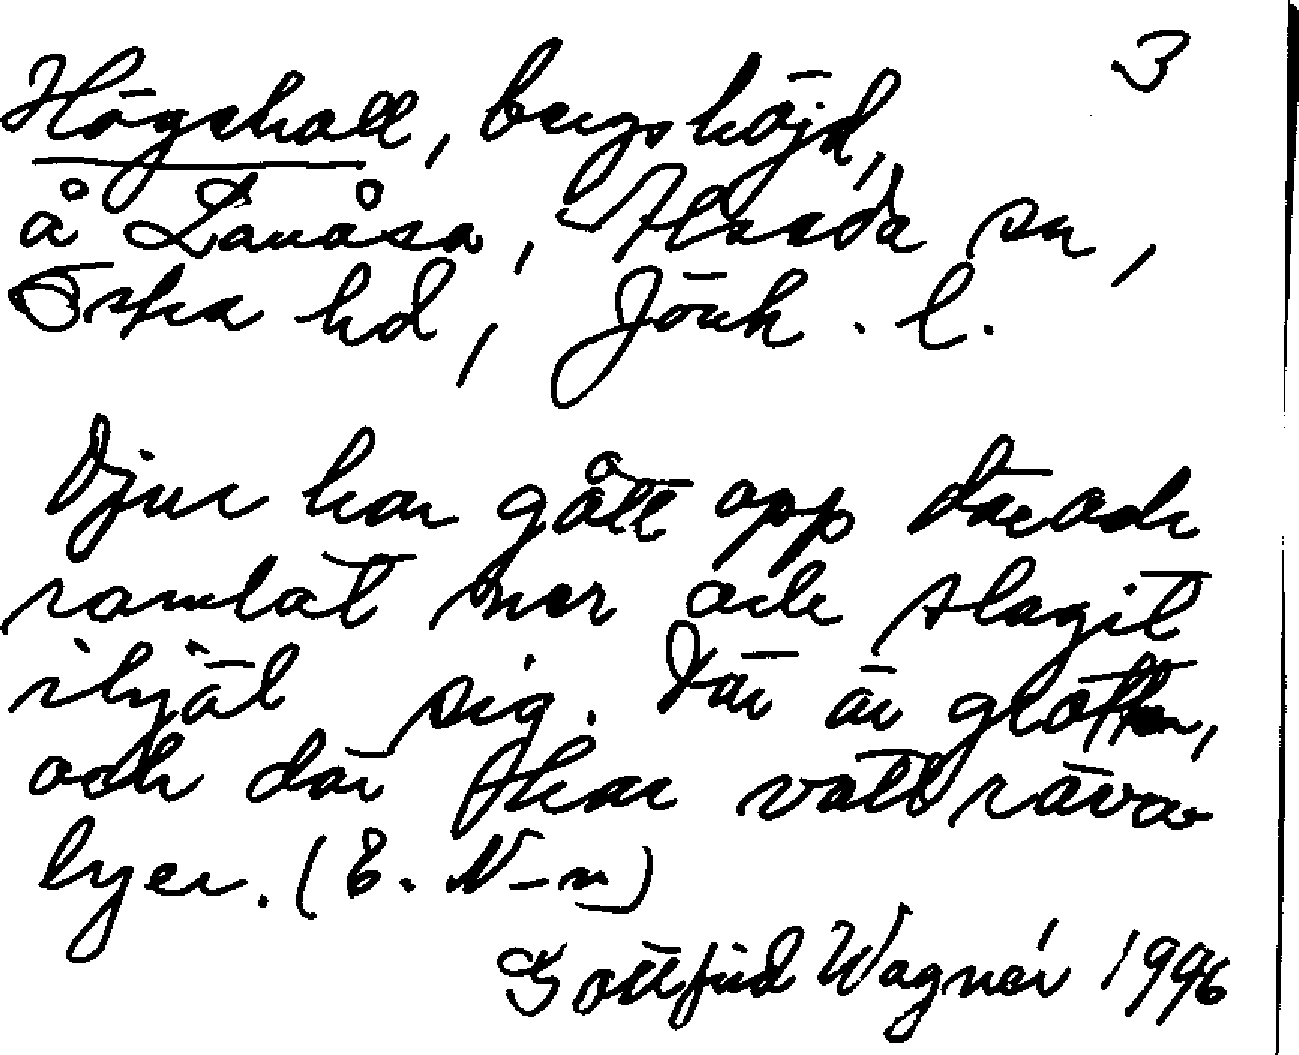 3
Högshall, bergshöjd,
å Lanåsa, Alseda sn,
Östra hd, Jönk. l.
Djur har gått opp där och
ramlat ner och slagit
ihjäl sig. Där är grotter,
och där har vatt räva
lyer. (E. N-n)
Gottfrid Wagnér 1996